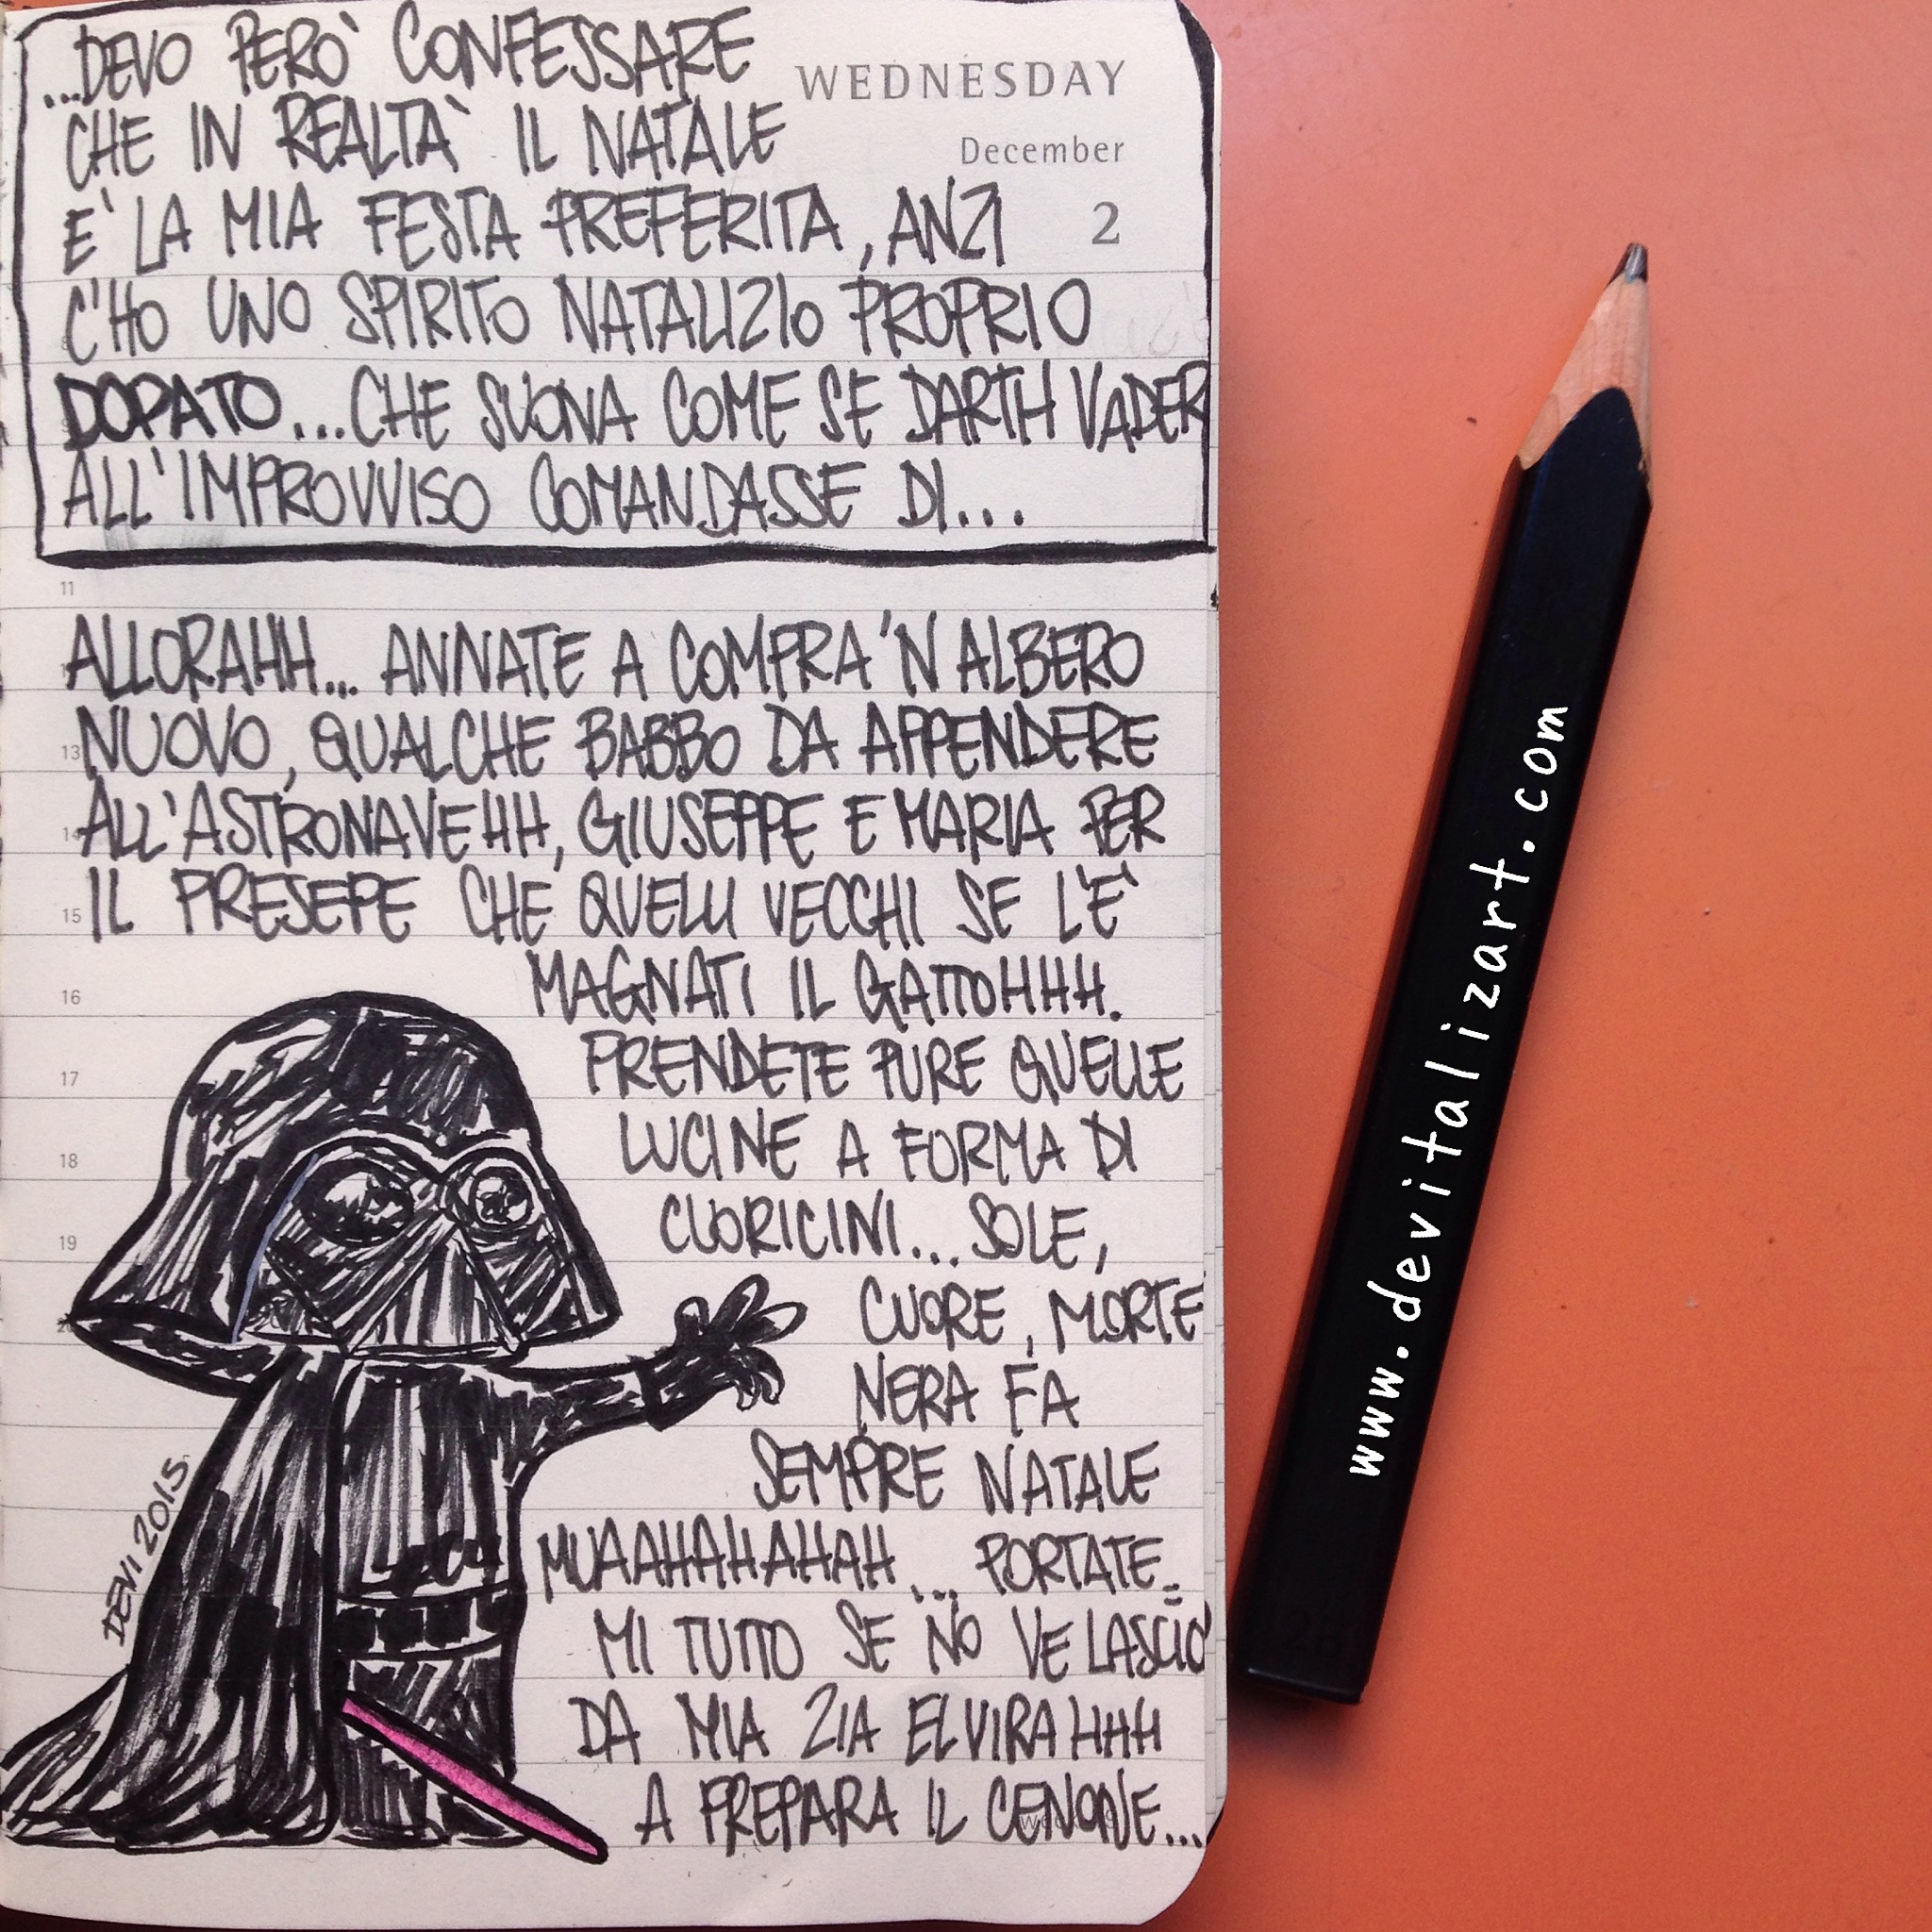 ...DEVO PERÒ CONFESSARE
WEDNESDAY
CHE IN REALTA' IL NATALE
December
E' LA MIA FESTA PREFERITA, ANZI
2
C'HO UNO SPIRITO NATALIZIO PROPRIO
DOPATO...CHE SUONA COME SE DARTH VADER
ALL'IMPROVVISO COMANDASSE DI...
11
ALLORAHH... ANNATE A COMPRA 'N ALBERO
NUOVO, QUALCHE BABBO DA APPENDERE
13
ALL'ASTRONAVEHH, GIUSEPPE E MARIA PER
14
IL PRESEPE CHE QUELLI VECCHI SE L'È
15
MAGNATI IL GATTOHHH.
16
PRENDETE PURE QUELLE
17
LUCINE A FORMA DI
18
CUORICINI... SOLE,
19
CUORE, MORTE
20
NERA FA
SEMPRE NATALE
MUAAHAHAHAH... PORTATE-
MI TUTTO SE NO VE LASCIO
DA MIA ZIA ELVIRAHHH
A PREPARA IL CENONE...
DEVI 2015
www.devitalizart.com
2B